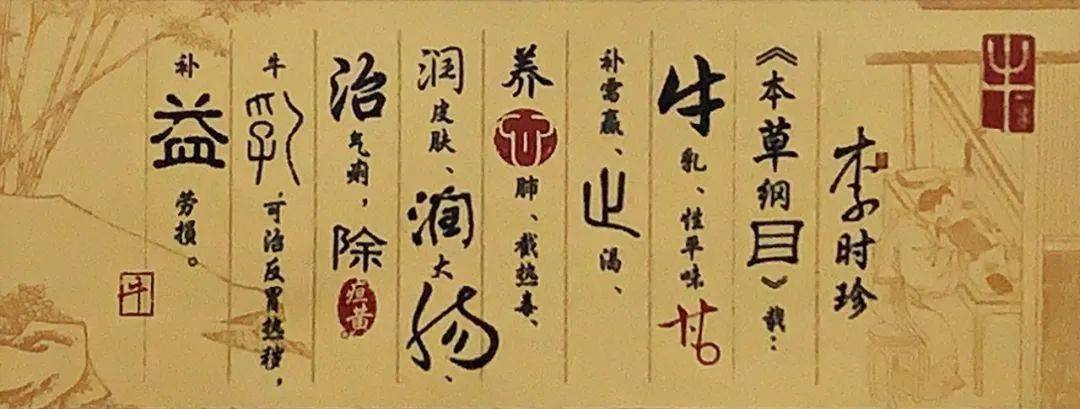 李时珍
《本草纲目》载：
牛乳、性平味甘
补虚羸、止渴、
养心肺、截热毒、
润皮肤、润大肠、
治气痢，除疸黄。
牛乳，可治反胃热哕，
补益劳损。
牛